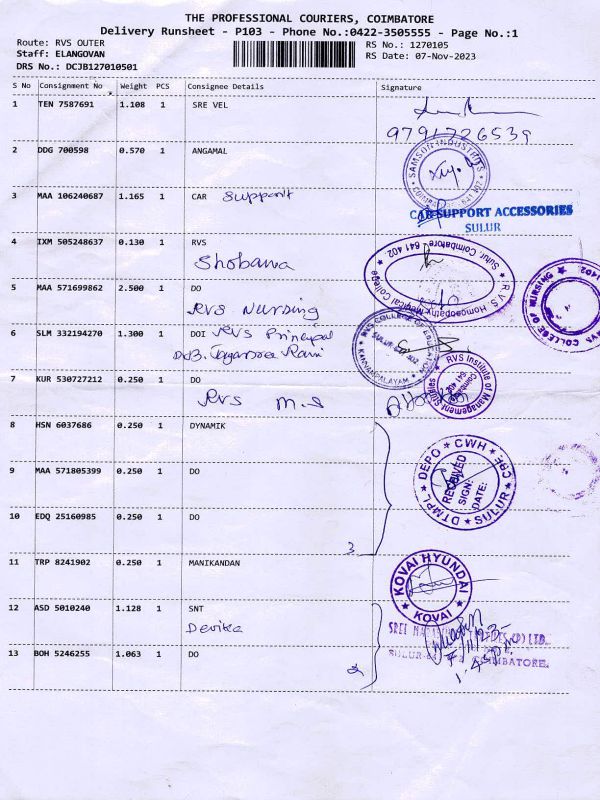 THE PROFESSIONAL COURIERS, COIMBATORE
Delivery Runsheet - P103 - Phone No.:0422-3505555 - Page No.:1
Route: RVS OUTER
RS No.: 1270105
Staff: ELANGOVAN
RS Date: 07-Nov-2023
DRS No.: DCJB127010501
S No Consignment No Weight PCS Consignee Details Signature
1 TEN 7587691 1.108 1 SRE VEL
9791726539
2 DDG 700598 0.570 1 ANGAMAL
SAMSON INDUSTRIES
3 MAA 106240687 1.165 1 CAR Support
CAR SUPPORT ACCESSORIES
SULUR
4 IXM 505248637 0.130 1 RVS
Shobana
R.V.S. Homoeopathy Medical College
Sulur Coimbatore 641 402
5 MAA 571699862 2.500 1 DO
RVS Nursing
COLLEGE OF NURSING
6 SLM 332194270 1.300 1 DOI RVS Principal
RVS COLLEGE OF
KANNAMPALAYAM
7 KUR 530727212 0.250 1 DO
RVS M.S
RVS Institute of Management Studies
8 HSN 6037686 0.250 1 DYNAMIK
9 MAA 571805399 0.250 1 DO
DTMPL DEPO CWH CBE SULUR
RECEIVED
SIGN:
DATE:
10 EDQ 25160985 0.250 1 DO
3
11 TRP 8241902 0.250 1 MANIKANDAN
KOVAI HYUNDAI
KOVAI
12 ASD 5010240 1.128 1 SNT
Devika
SREI (P) LTD.
7/11/23
13 BOH 5246255 1.063 1 DO
2
SULUR COIMBATORE.
1.45pm